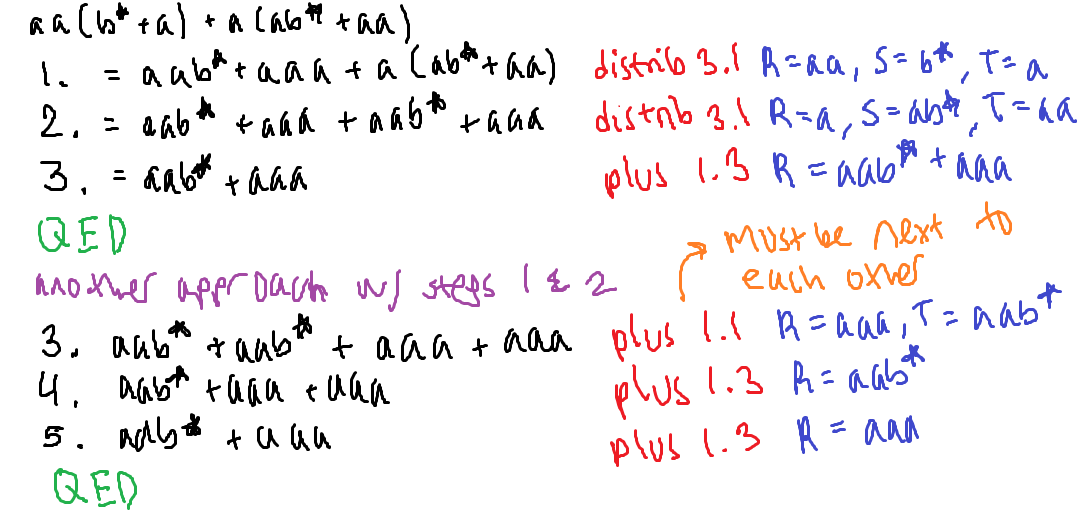 aa(b*+a) + a(ab*+aa)
1. = aab*+aaa+a(ab*+aa) distrib 3.1 R=aa, S=b*, T=a
2. = aab*+aaa+aab*+aaa distrib 3.1 R=a, S=ab*, T=aa
3. = aab*+aaa plus 1.3 R=aab*+aaa
QED
must be next to
each other
another approach w/ steps 1 & 2
3. aab*+aab*+aaa+aaa plus 1.1 R=aaa, T=aab*
4. aab*+aaa+aaa plus 1.3 R=aab*
5. aab*+aaa plus 1.3 R=aaa
QED